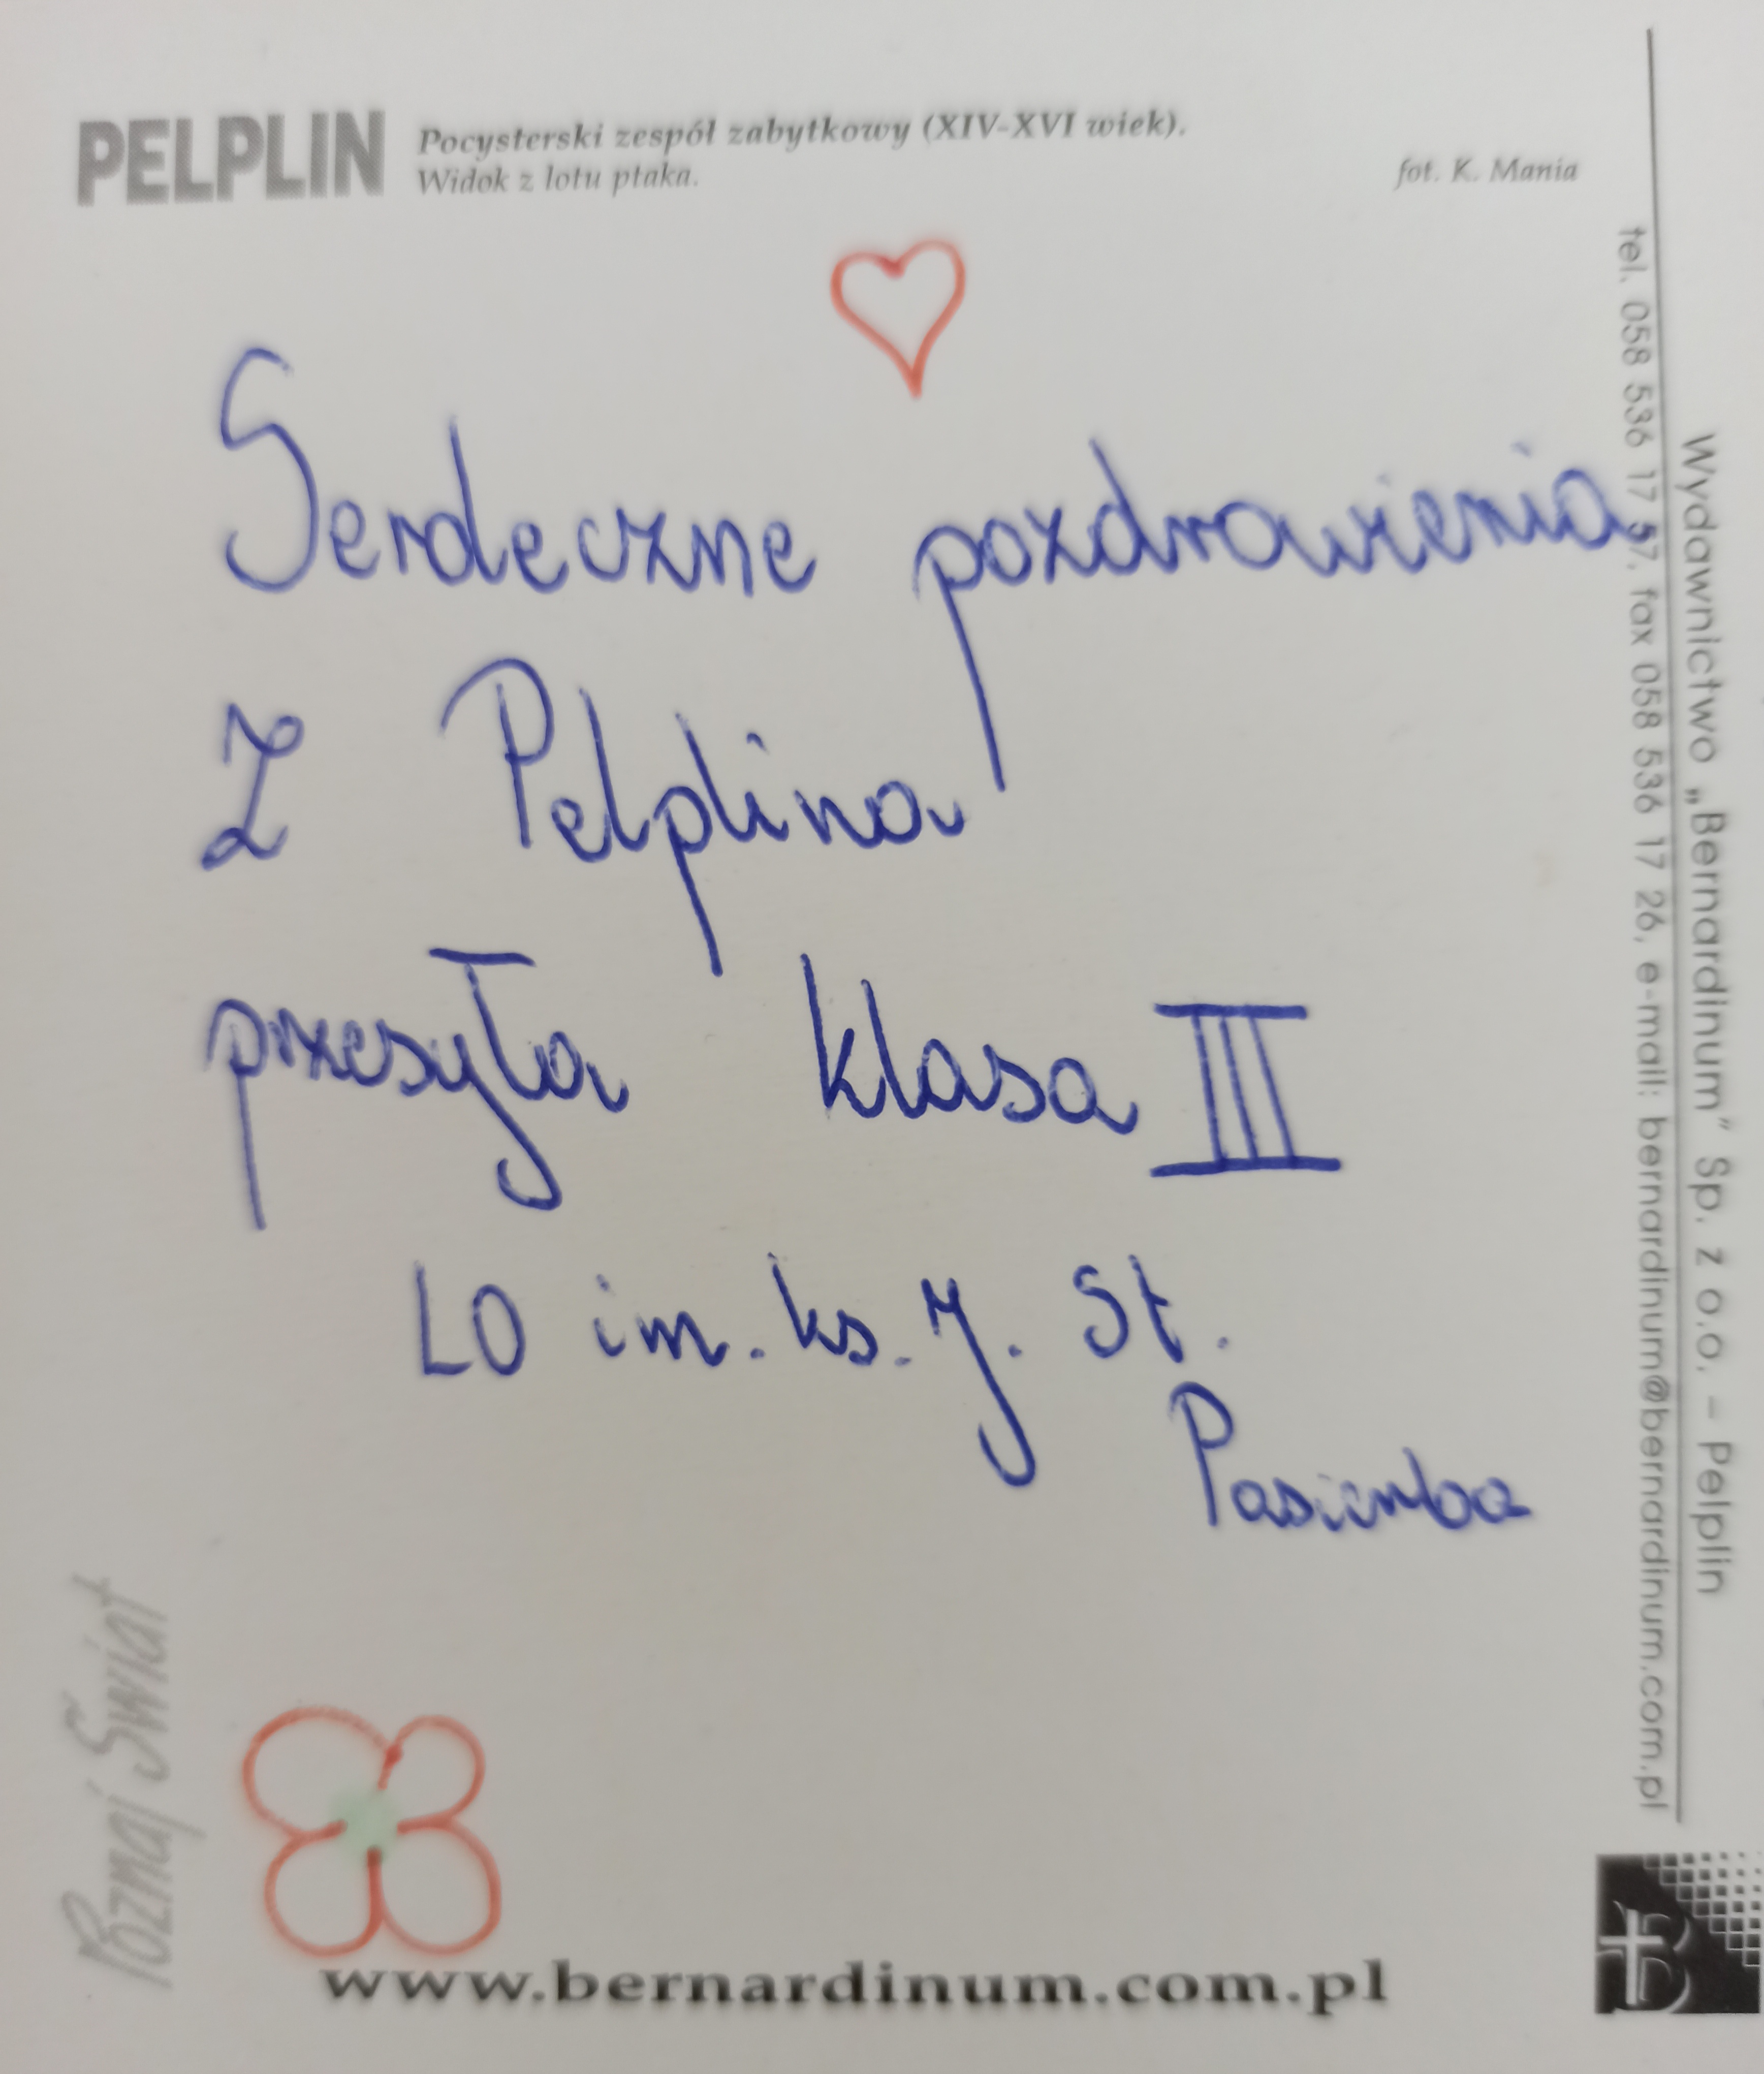 PELPLIN
Pocysterski zespół zabytkowy (XIV-XVI wiek).
Widok z lotu ptaka.
fot. K. Mania
Serdeczne pozdrowienia
Z Pelplina
przesyła klasa III
LO im. ks. J. St.
Pasierba
Poznaj Świat
www.bernardinum.com.pl
Wydawnictwo „Bernardinum” Sp. z o.o. – Pelplin
tel. 058 536 17 57, fax 058 536 17 26, e-mail: bernardinum@bernardinum.com.pl